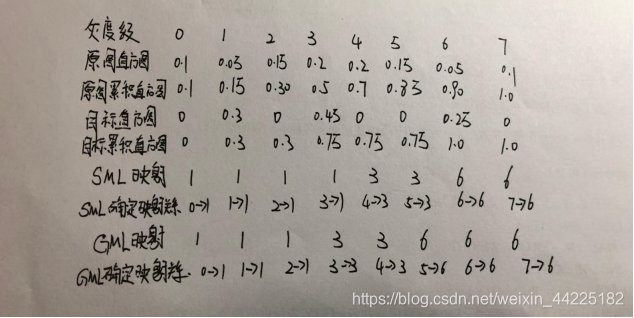 灰度级 0 1 2 3 4 5 6 7
原图直方图 0.1 0.05 0.15 0.2 0.2 0.15 0.05 0.1
原图累积直方图 0.1 0.15 0.30 0.5 0.7 0.85 0.90 1.0
目标直方图 0 0.3 0 0.45 0 0 0.25 0
目标累积直方图 0 0.3 0.3 0.75 0.75 0.75 1.0 1.0
SML映射 1 1 1 1 3 3 6 6
SML确定映射关系 0→1 1→1 2→1 3→1 4→3 5→3 6→6 7→6
GML映射 1 1 1 3 3 6 6 6
GML确定映射关系. 0→1 1→1 2→1 3→3 4→3 5→6 6→6 7→6
https://blog.csdn.net/weixin_44225182